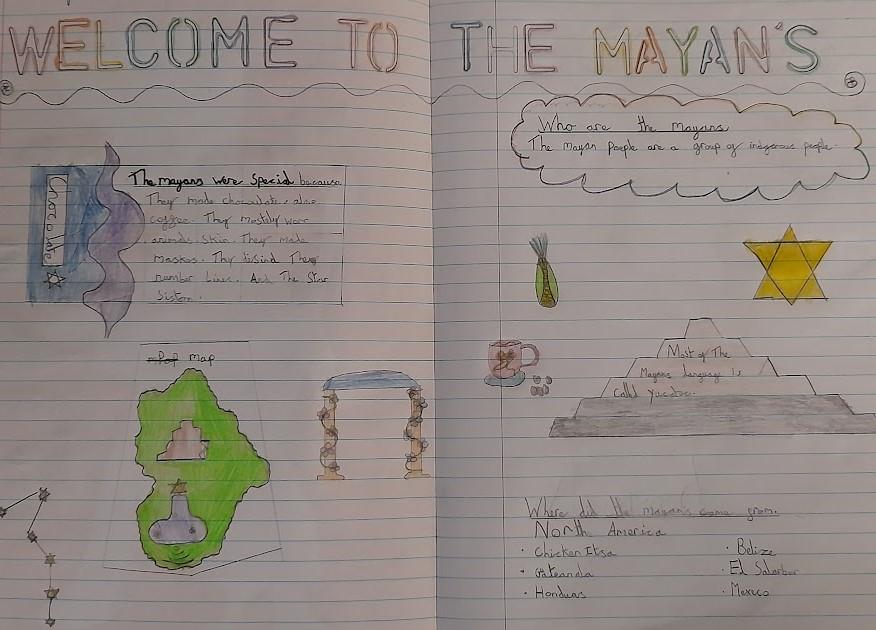 WELCOME TO THE MAYAN'S
Chocolate
The mayans were Special because
They made chocailate, also
coffee. They mostly wore
animals. Skin. They made
Maskes. They
number Lines. And The Star
Sistom.
map
Who are the mayans
The mayan people are a group of indgenous people.
Most of The
Mayans language is
Called Yucatec.
Where did the mayan's come from.
North America
· Chicken Itsa
· Gateamla
· Honduas
· Belize
· El Salarbor
· Mexico